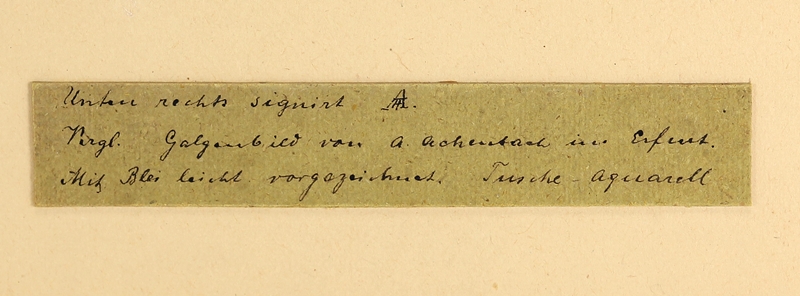 Unten rechts signirt AA.
Vergl. Galgenbild von A. Achenbach in Erfurt.
Mit Blei leicht vorgezeichnet. Tusche-Aquarell